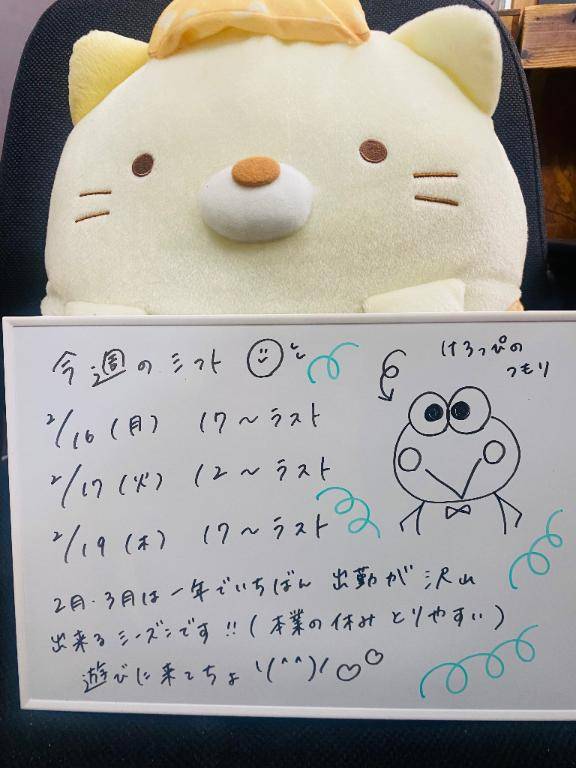 今週のシフト
けろっぴの
つもり
2/16(月) 17〜ラスト
2/17(火) 12〜ラスト
2/19(木) 17〜ラスト
2月・3月は一年でいちばん 出勤が 沢山
出来るシーズンです!!(本業の休みとりやすい)
遊びに来てちょ\(^^)/♡♡